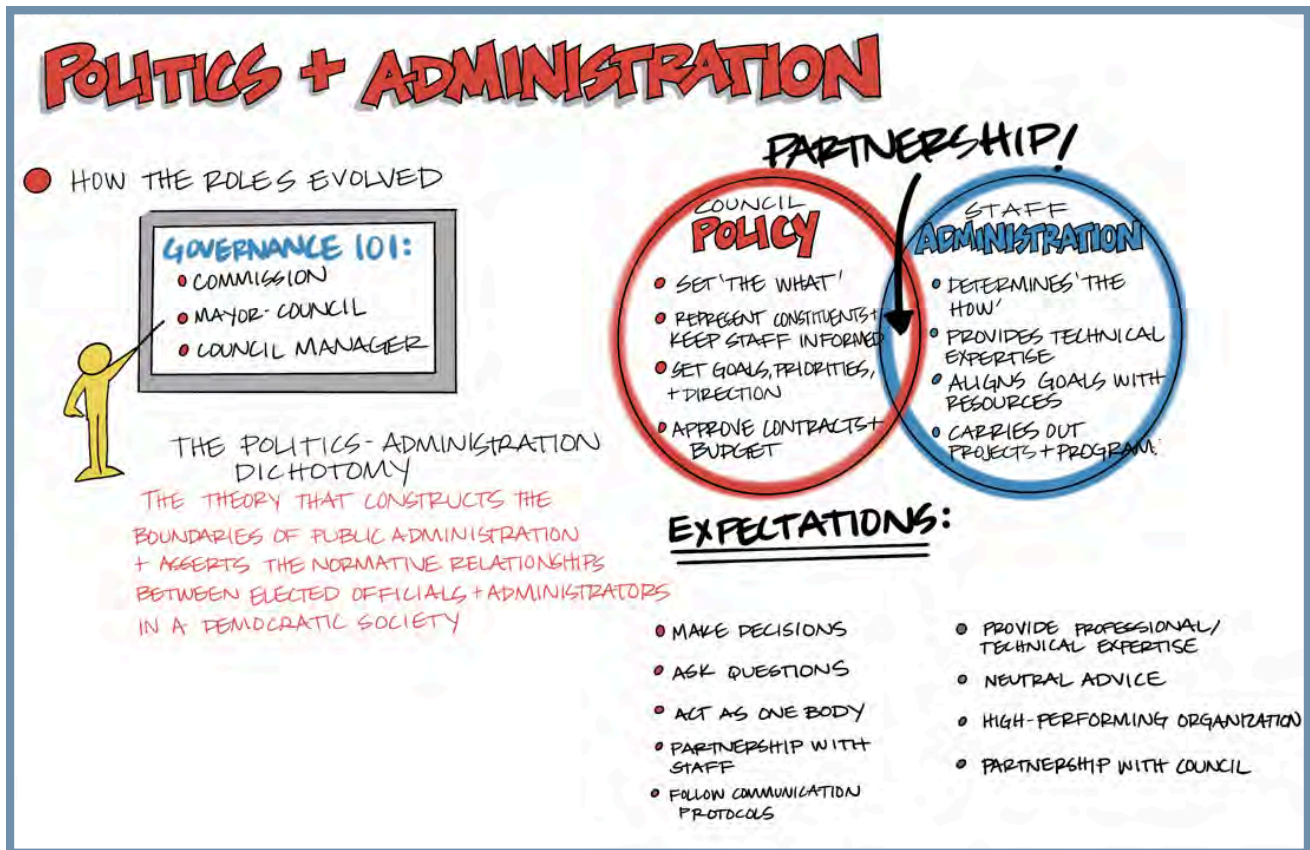 POLITICS + ADMINISTRATION
HOW THE ROLES EVOLVED
GOVERNANCE 101:
COMMISSION
MAYOR-COUNCIL
COUNCIL MANAGER
THE POLITICS-ADMINISTRATION
DICHOTOMY
THE THEORY THAT CONSTRUCTS THE
BOUNDARIES OF PUBLIC ADMINISTRATION
+ ASSERTS THE NORMATIVE RELATIONSHIPS
BETWEEN ELECTED OFFICIALS + ADMINISTRATORS
IN A DEMOCRATIC SOCIETY
PARTNERSHIP!
COUNCIL
POLICY
SET 'THE WHAT'
REPRESENT CONSTITUENTS +
KEEP STAFF INFORMED
SET GOALS, PRIORITIES,
+ DIRECTION
APPROVE CONTRACTS +
BUDGET
STAFF
ADMINISTRATION
DETERMINES 'THE
HOW'
PROVIDES TECHNICAL
EXPERTISE
ALIGNS GOALS WITH
RESOURCES
CARRIES OUT
PROJECTS + PROGRAM
EXPECTATIONS:
MAKE DECISIONS
ASK QUESTIONS
ACT AS ONE BODY
PARTNERSHIP WITH
STAFF
FOLLOW COMMUNICATION
PROTOCOLS
PROVIDE PROFESSIONAL/
TECHNICAL EXPERTISE
NEUTRAL ADVICE
HIGH-PERFORMING ORGANIZATION
PARTNERSHIP WITH COUNCIL